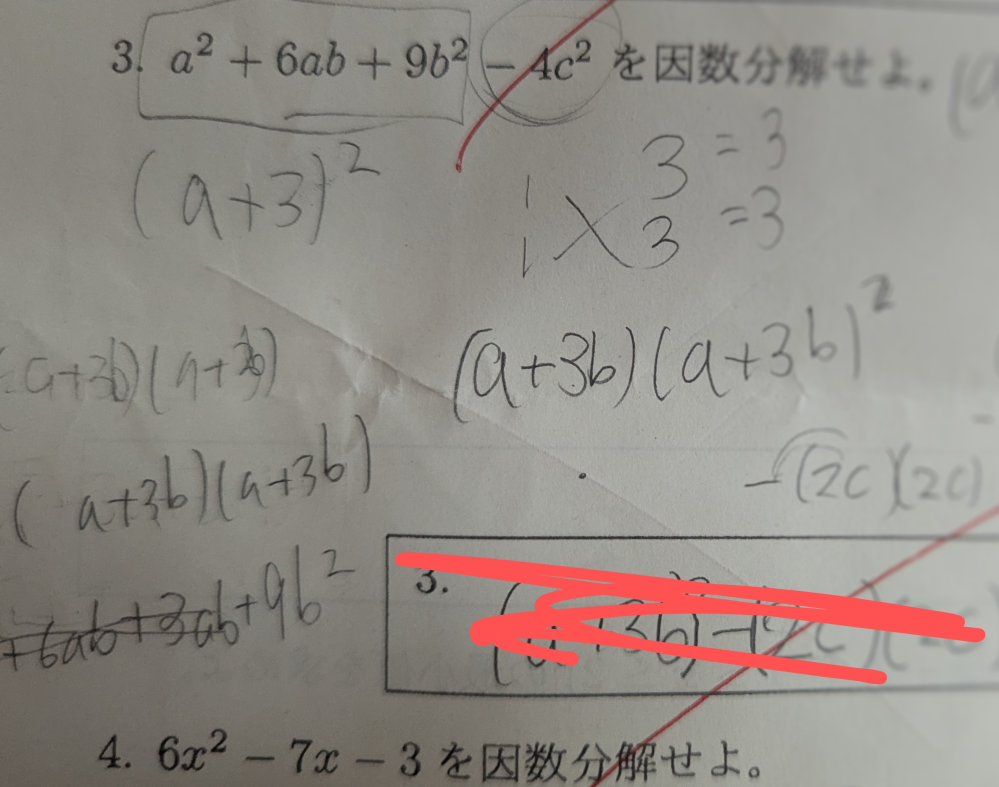 3. a² + 6ab + 9b² − 4c² を因数分解せよ。
(a+3)²
1 3 = 3
1 3 = 3
(a+3b)(a+3b)
(a+3b)(a+3b)²
(a+3b)(a+3b)
−(2c)(2c)
+6ab+3ab+9b²
3.
4. 6x² − 7x − 3 を因数分解せよ。